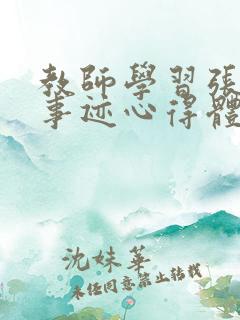 教師學習張
事迹心得體
沈妹華
未经同意禁止转载